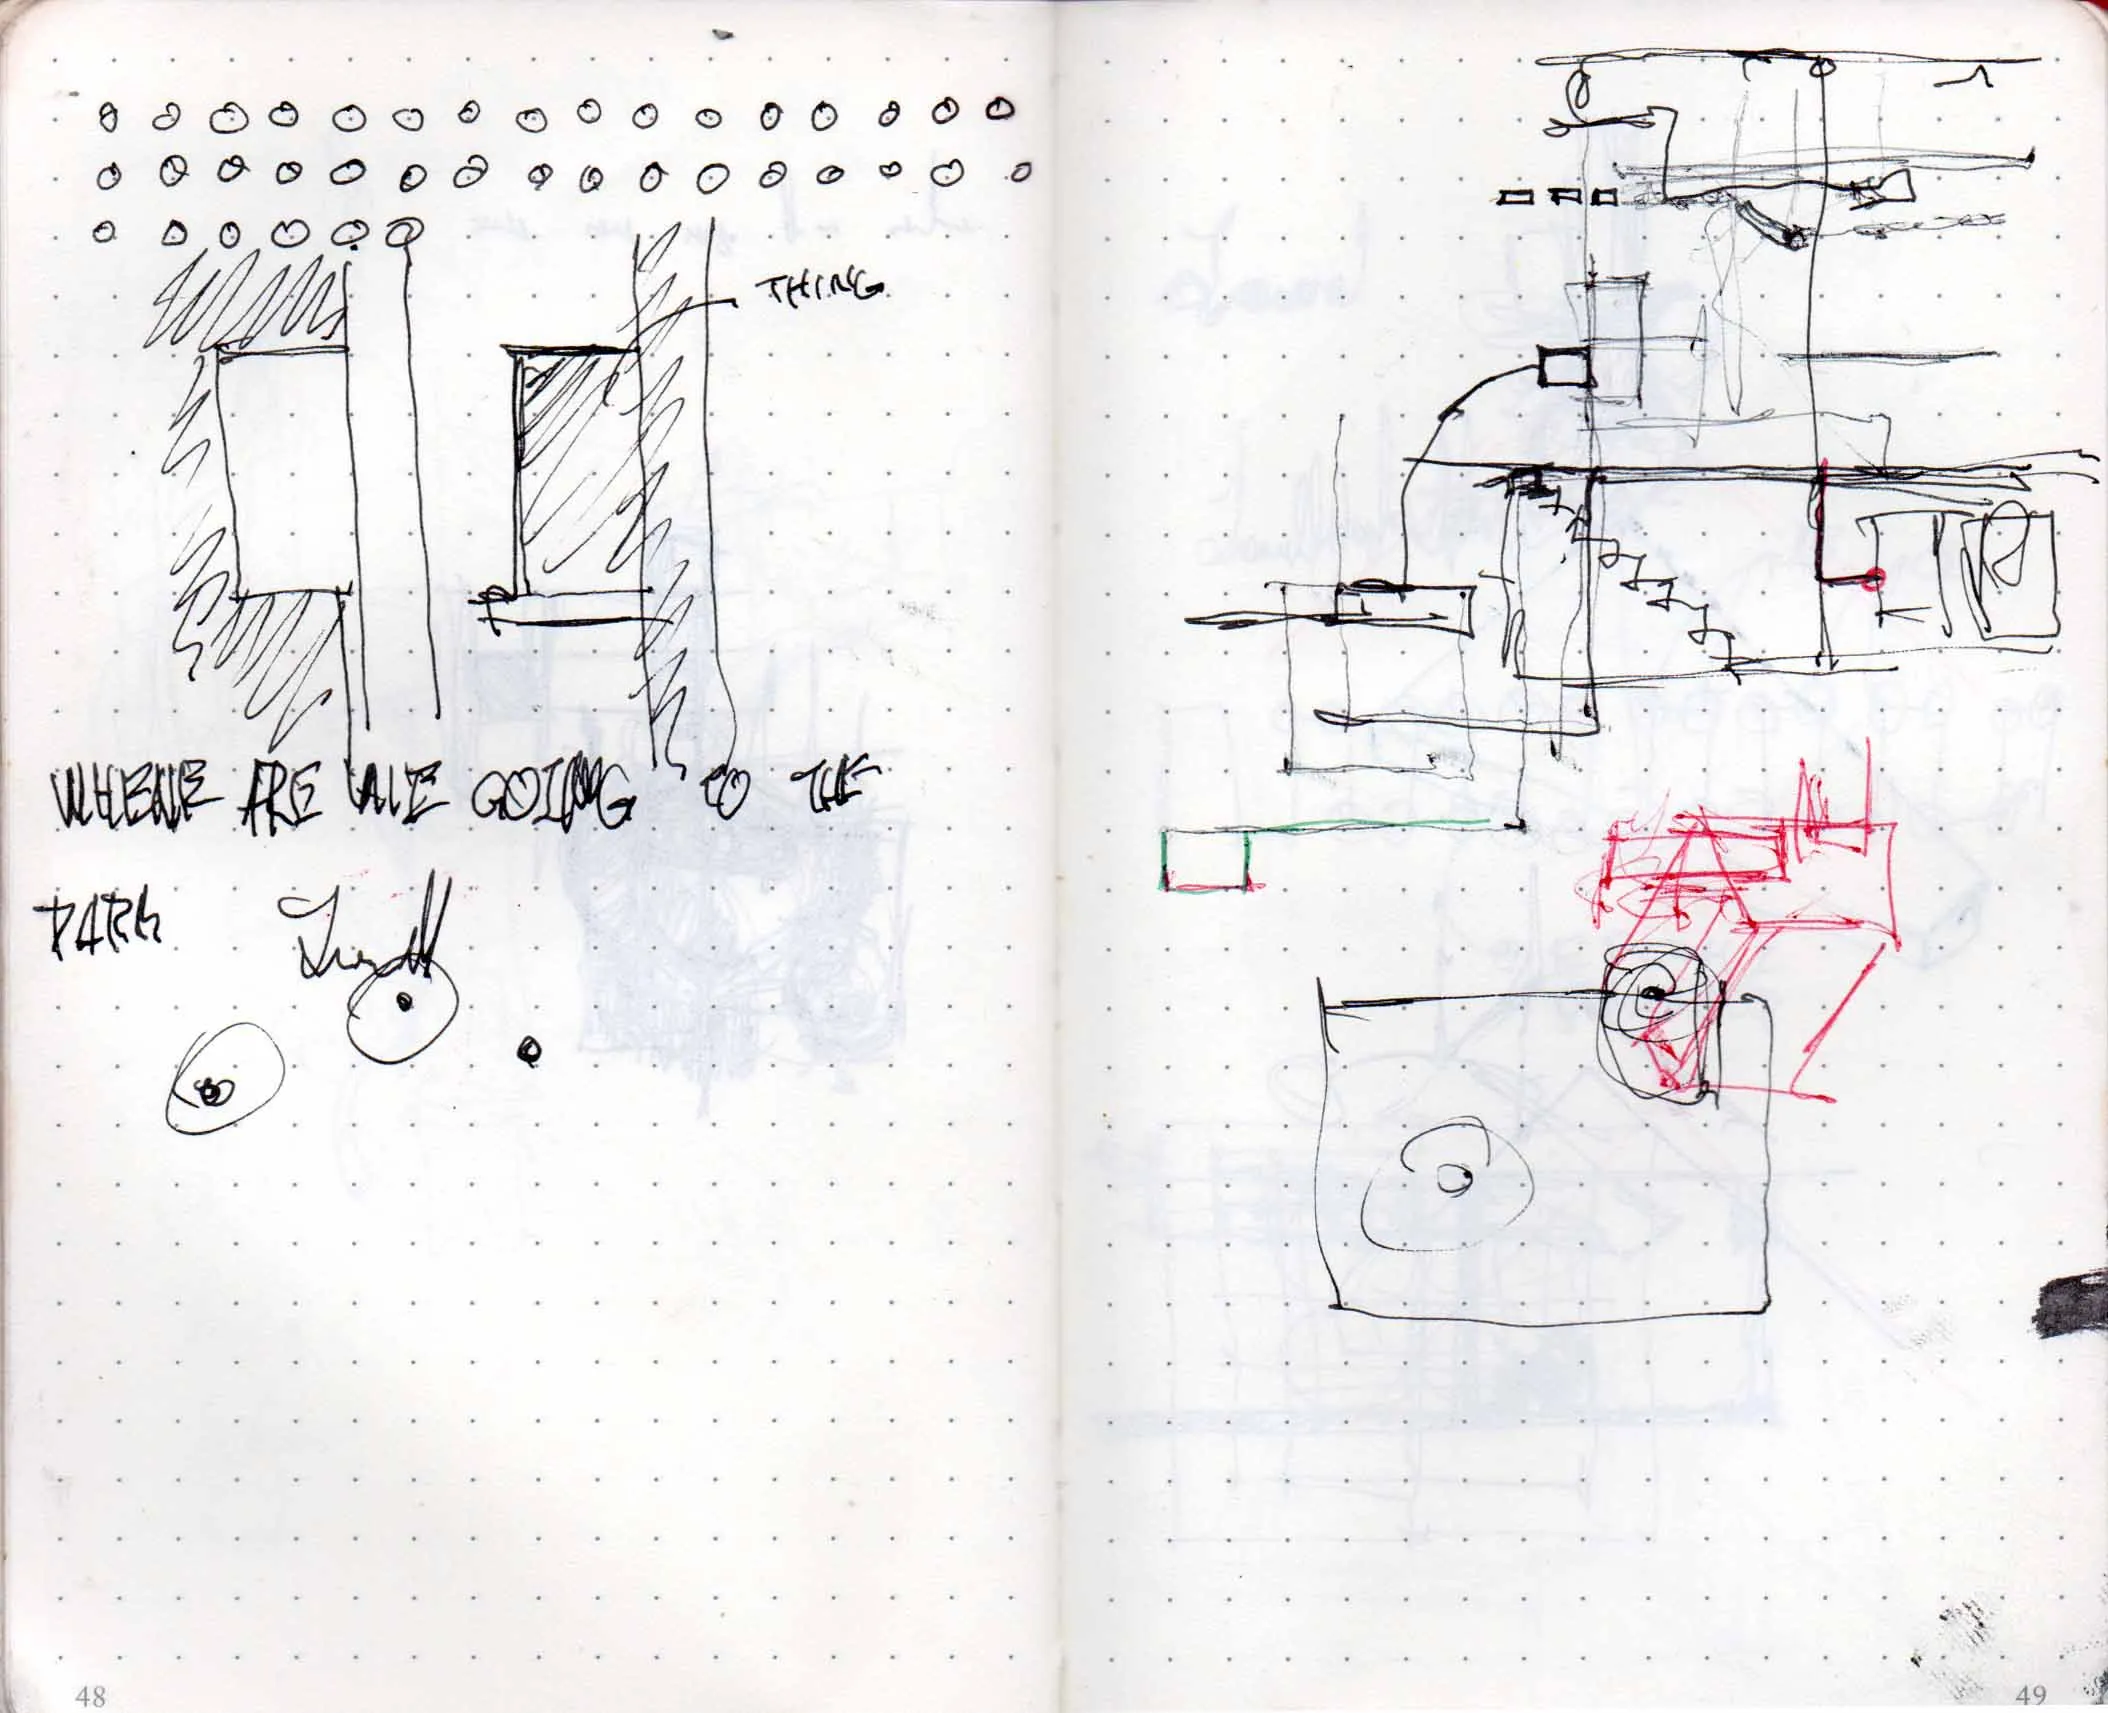 THING
WHERE ARE WE GOING TO THE
PARK
48
49